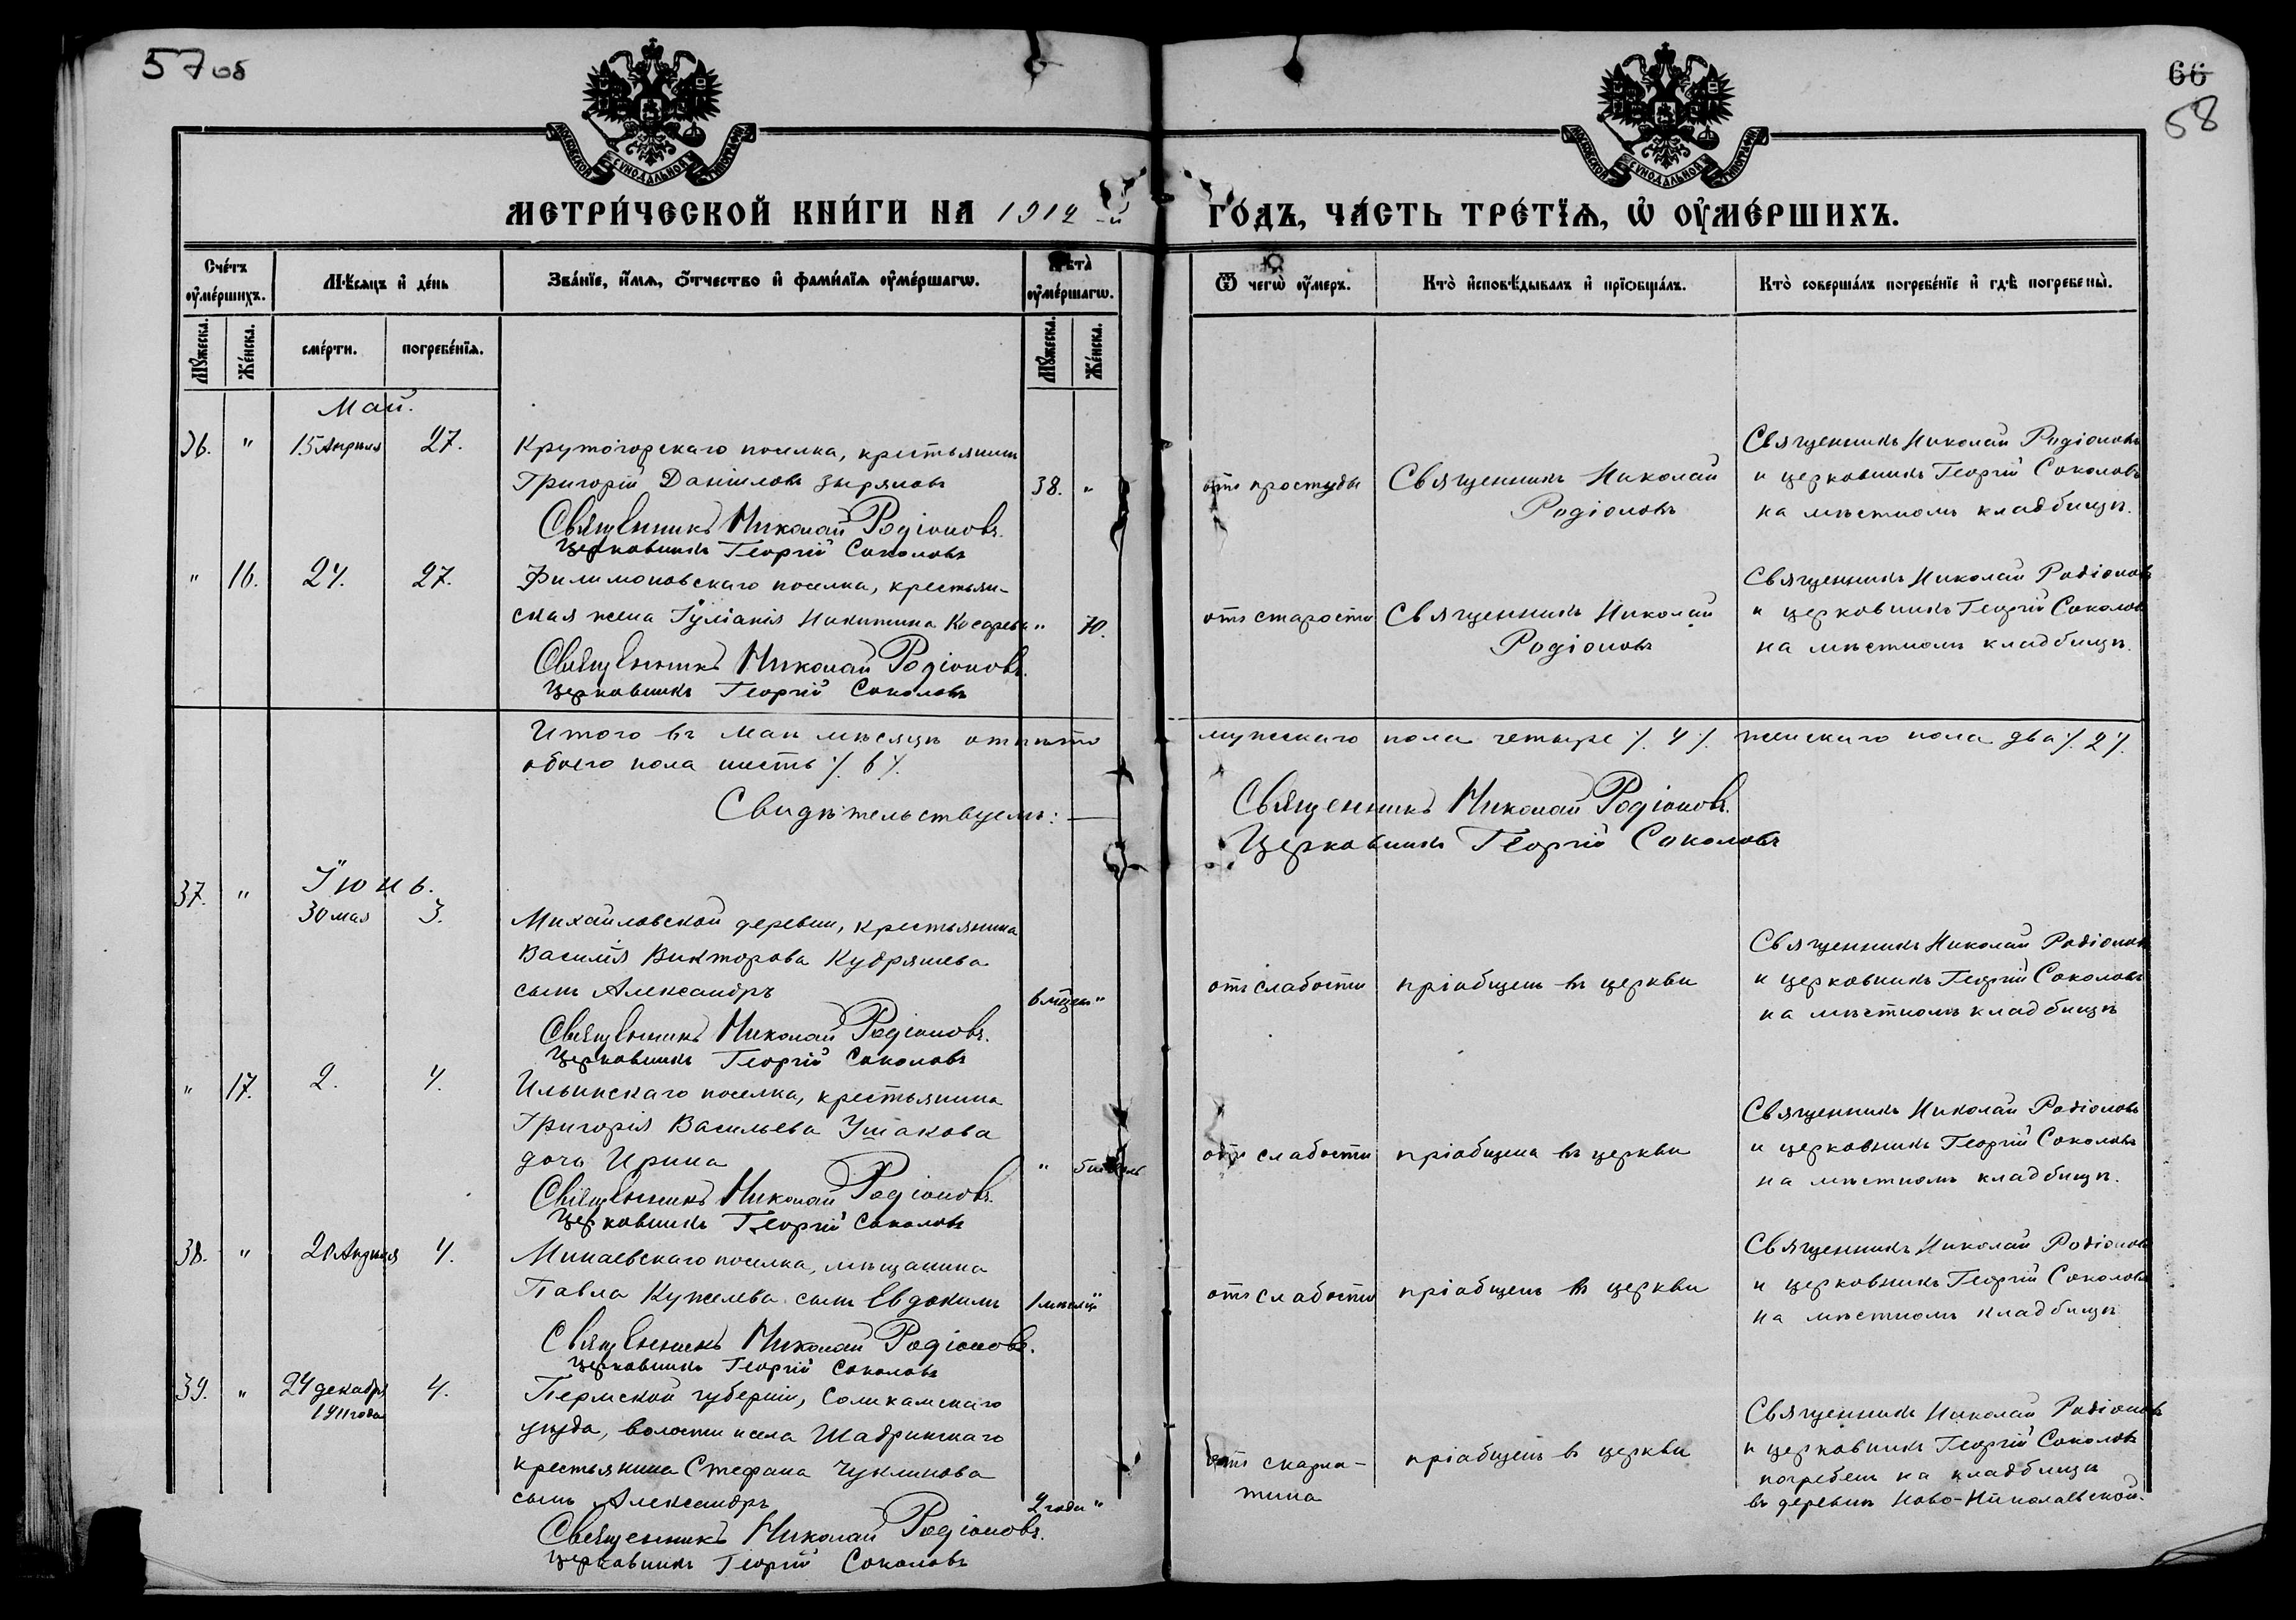 57 об
66
58
МОСКОВСКОЙ СѴНОДАЛЬНОЙ ТИПОГРАФІИ
МОСКОВСКОЙ СѴНОДАЛЬНОЙ ТИПОГРАФІИ
МЕТРИ́ЧЕСКОЙ КНИ́ГИ НА 1912-й ГО́ДЪ, ЧА́СТЬ ТРЕ́ТЇѦ, Ѡ҆ ОУ҆МЕ́РШИХЪ.
Сче́тъ оу҆ме́ршихъ.
Мѣ́сяцъ и҆ де́нь
Зва́нїе, и҆́мѧ, ѻ҆́тчество и҆ фами́лїѧ оу҆ме́ршагѡ.
Лѣта̀ оу҆ме́ршагѡ.
Ѿ чегѡ̀ оу҆́меръ.
Кто̀ и҆сповѣ́дывалъ и҆ прїѡбща́лъ.
Кто̀ соверша́лъ погребе́нїе и҆ гдѣ̀ погребены̀.
Мꙋ́жеска.
Же́нска.
сме́рти.
погребе́нїѧ.
Мꙋ́жеска.
Же́нска.
Май.
36. " 15 Апрѣля 27. Крутогорскаго поселка, крестьянинъ
Григорій Даніиловъ Зыряновъ 38. "
Священникъ Николай Родіоновъ.
Церковникъ Георгій Соколовъ
отъ простуды
Священникъ Николай
Родіоновъ
Священникъ Николай Родіоновъ
и церковникъ Георгій Соколовъ
на мѣстномъ кладбищѣ.
" 16. 24. 27. Филимоновскаго поселка, крестьян-
ская жена Іуліанія Никитина Косарева " 70.
Священникъ Николай Родіоновъ.
Церковникъ Георгій Соколовъ
отъ старости
Священникъ Николай
Родіоновъ
Священникъ Николай Родіоновъ
и церковникъ Георгій Соколовъ
на мѣстномъ кладбищѣ.
Итого въ маѣ мѣсяцѣ отпѣто мужскаго пола четыре ./. 4 ./. женскаго пола два ./. 2 ./.
обоего пола шесть ./. 6 ./.
Свидѣтельствуемъ: —
Священникъ Николай Родіоновъ.
Церковникъ Георгій Соколовъ
Іюнь.
37. " 30 мая 3. Михайловской деревни, крестьянина
Василія Викторова Кудряшева
сынъ Александръ 6 мѣсяц. "
Священникъ Николай Родіоновъ.
Церковникъ Георгій Соколовъ
отъ слабости
пріобщенъ въ церкви
Священникъ Николай Родіоновъ
и церковникъ Георгій Соколовъ
на мѣстномъ кладбищѣ
" 17. 2. 4. Ильинскаго поселка, крестьянина
Григорія Васильева Ушакова
дочь Ирина "
Священникъ Николай Родіоновъ.
Церковникъ Георгій Соколовъ
отъ слабости
пріобщена въ церкви
Священникъ Николай Родіоновъ
и церковникъ Георгій Соколовъ
на мѣстномъ кладбищѣ.
38. " Апрѣля 4. Минаевскаго поселка, мѣщанина
Павла сынъ Евдокимъ 1 мѣсяц "
Священникъ Николай Родіоновъ.
Церковникъ Георгій Соколовъ
отъ слабости
пріобщенъ въ церкви
Священникъ Николай Родіоновъ
и церковникъ Георгій Соколовъ
на мѣстномъ кладбищѣ
39. " 24 декабря 4. Пермской губерніи, Соликамскаго
1911 года
уѣзда, волости и села Шадринскаго
крестьянина Стефана Чуклинова
сынъ Александръ 2 года "
Священникъ Николай Родіоновъ.
Церковникъ Георгій Соколовъ
отъ скарла-
тина
пріобщенъ въ церкви
Священникъ Николай Родіоновъ
и церковникъ Георгій Соколовъ
погребенъ на кладбищѣ
въ деревнѣ Ново-Николаевской.